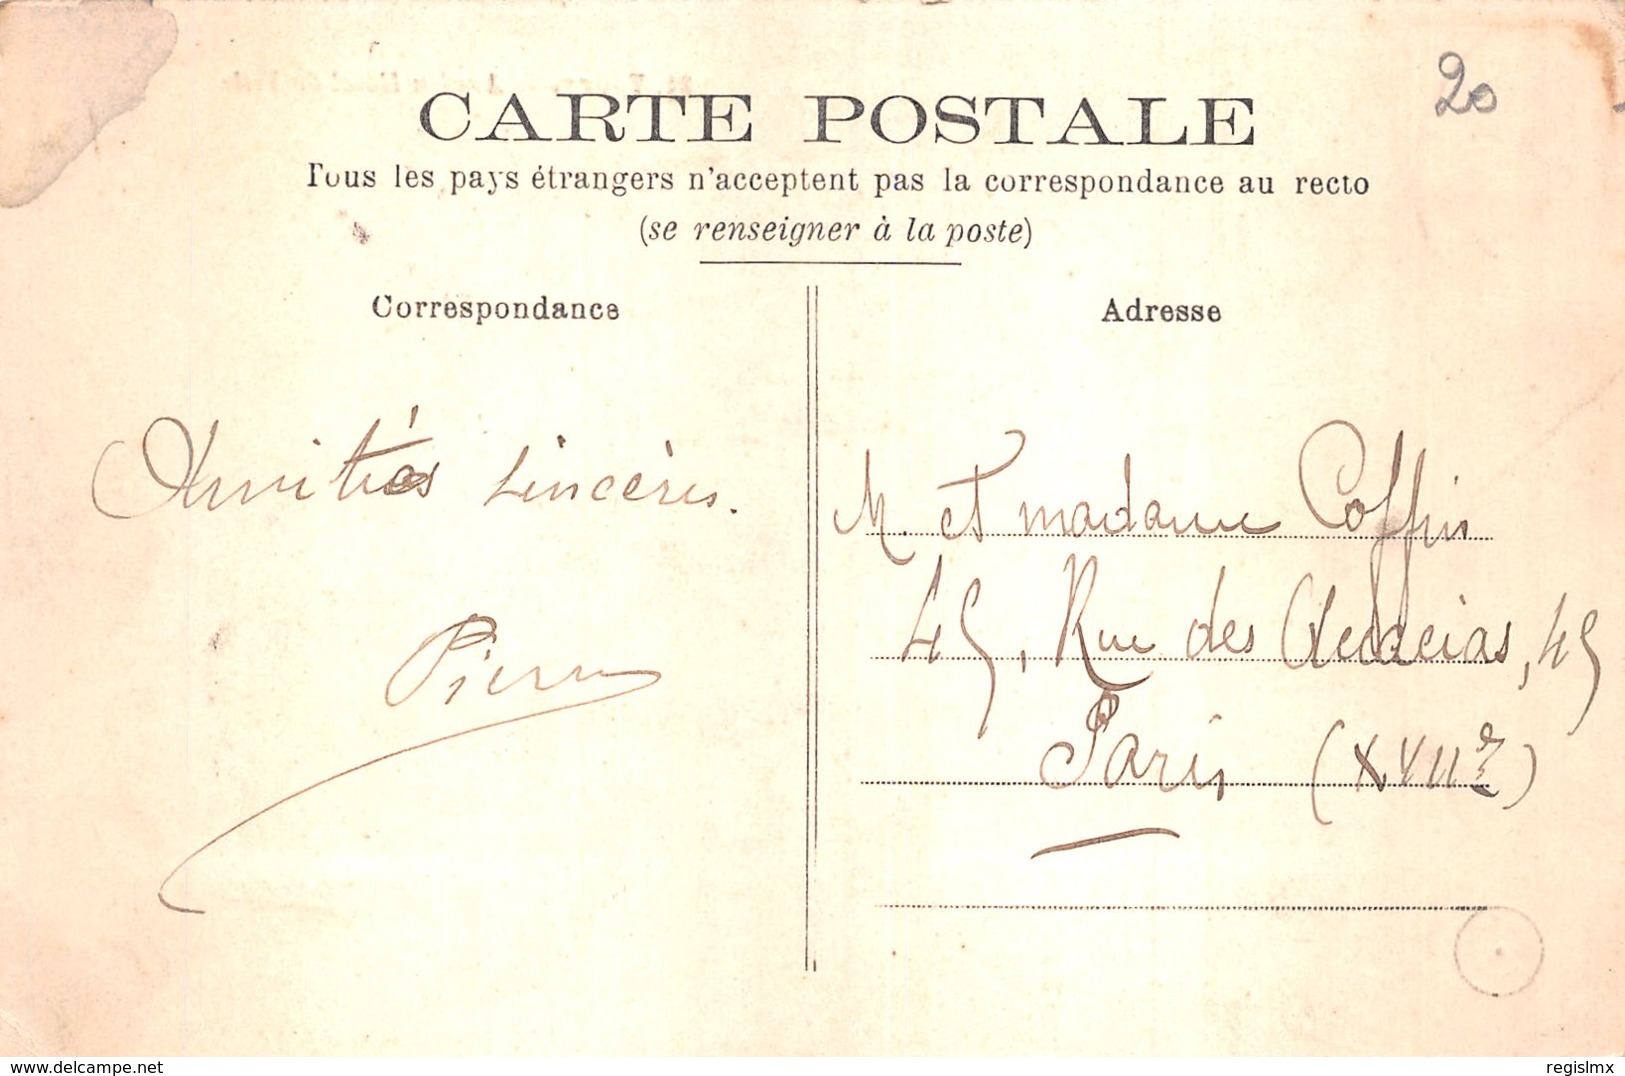 20
CARTE POSTALE
Tous les pays étrangers n'acceptent pas la correspondance au recto
(se renseigner à la poste)
Correspondance
Adresse
Amitiés sincères.
Pierre
M. et madame Coffin
45, Rue des Acacias, 45
Paris (XVIIe)
www.delcampe.net
regislmx